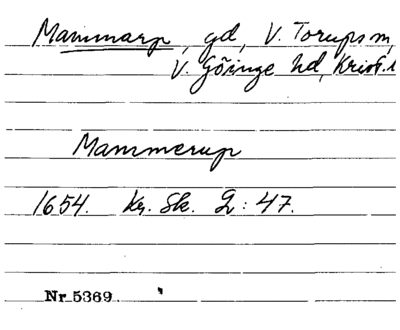 Mammarp, gd, V. Torups sn,
V. Göinge hd, Krist. l
Mammerup
1654. Kr. Sk. 2:47.
Nr 5369